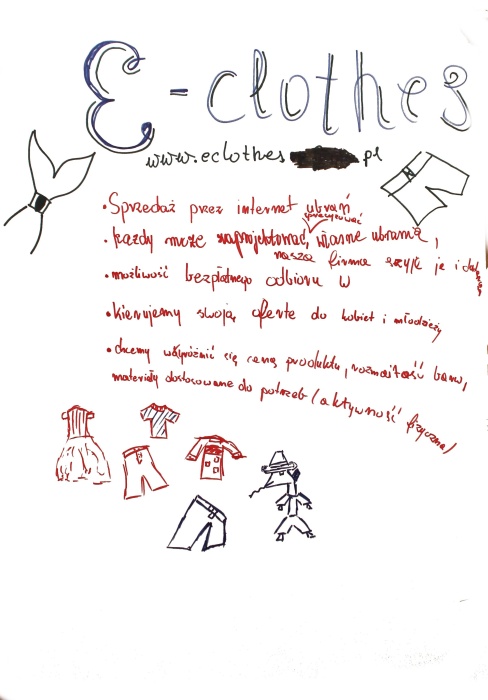 E-clothes
www.eclothes .pl
• Sprzedaż przez internet ubrań
sprecyzować
• każdy może zaprojektować własne ubrania,
nasza firma szyje je i
• możliwość bezpłatnego odbioru w
• kierujemy swoją ofertę do kobiet i młodzieży
• chcemy wyróżnić się ceną produktu, rozmaitość barw,
materiały dostosowane do potrzeb (aktywność fizyczna)